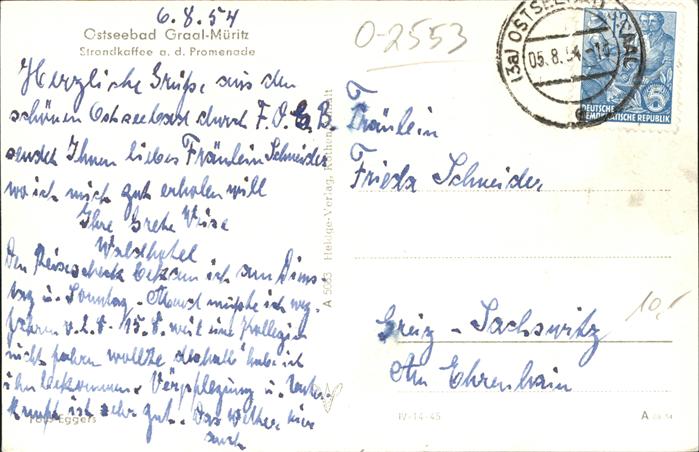 6.8.54
Ostseebad Graal-Müritz
Strandkaffee a. d. Promenade
Herzliche Grüße aus den
schönen Ostseebad durch F.D.G.B.
sendet Ihnen liebes Fräulein Schneider
wo ich mich gut erholen will
Ihre Grete
Waldhotel
Den Reisescheck bekam ich am Diens-
tag u. Sonntag - Abend mußte ich weg-
fahren v. 2.8 - 15.8. weil eine Kollegin
nicht fahren wollte deshalb habe ich
ihn bekommen. Verpflegung u. Unter-
kunft ist sehr gut. Das Wetter hier
auch
Foto Eggers
O-2553
(3a) OSTSEEBAD GRAAL
05.8.54
DEUTSCHE
DEMOKRATISCHE REPUBLIK
5
Fräulein
Frieda Schneider
Greiz - Sachswitz
Am Ehrenhain
10,-
A 5063 Heldge-Verlag, Köthen-Anhalt
IV-14-45
A